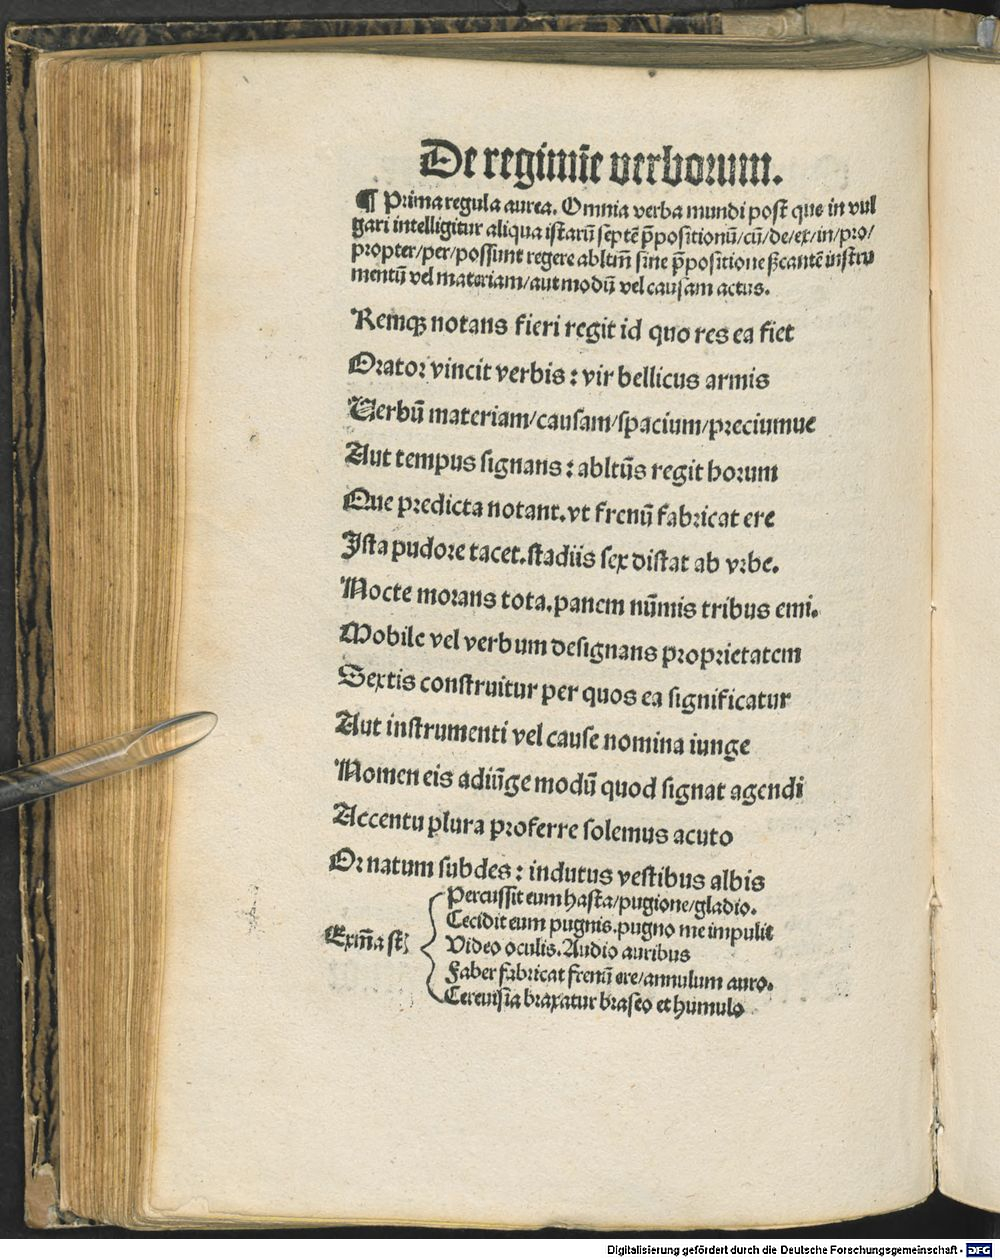 De regimīe verborum.
¶ Prima regula aurea. Omnia verba mundi post que in vul
gari intelligitur aliqua istarū septē p̄positionū/cū/de/ex/in/pro/
propter/per/possunt regere abltm̄ sine p̄positione ꝓcantē instru
mentū vel materiam/aut modū vel causam actus.
Remqꝫ notans fieri regit id quo res ea fiet
Orator vincit verbis : vir bellicus armis
Verbū materiam/causam/spacium/preciumue
Aut tempus signans : abltūs regit horum
Que predicta notant. vt frenū fabricat ere
Ista pudore tacet. stadiis sex distat ab vrbe.
Nocte morans tota. panem nūmis tribus emi.
Mobile vel verbum designans proprietatem
Sextis construitur per quos ea significatur
Aut instrumenti vel cause nomina iunge
Nomen eis adiūge modū quod signat agendi
Accentu plura proferre solemus acuto
Ornatum subdes : indutus vestibus albis
Exm̄a st̄
Percussit eum hasta/pugione/gladio.
Cecidit eum pugnis. pugno me impulit
Video oculis. Audio auribus
Faber fabricat frenū ere/annulum auro.
Cereuisia braxatur braseo et humulo
Digitalisierung gefördert durch die Deutsche Forschungsgemeinschaft - DFG